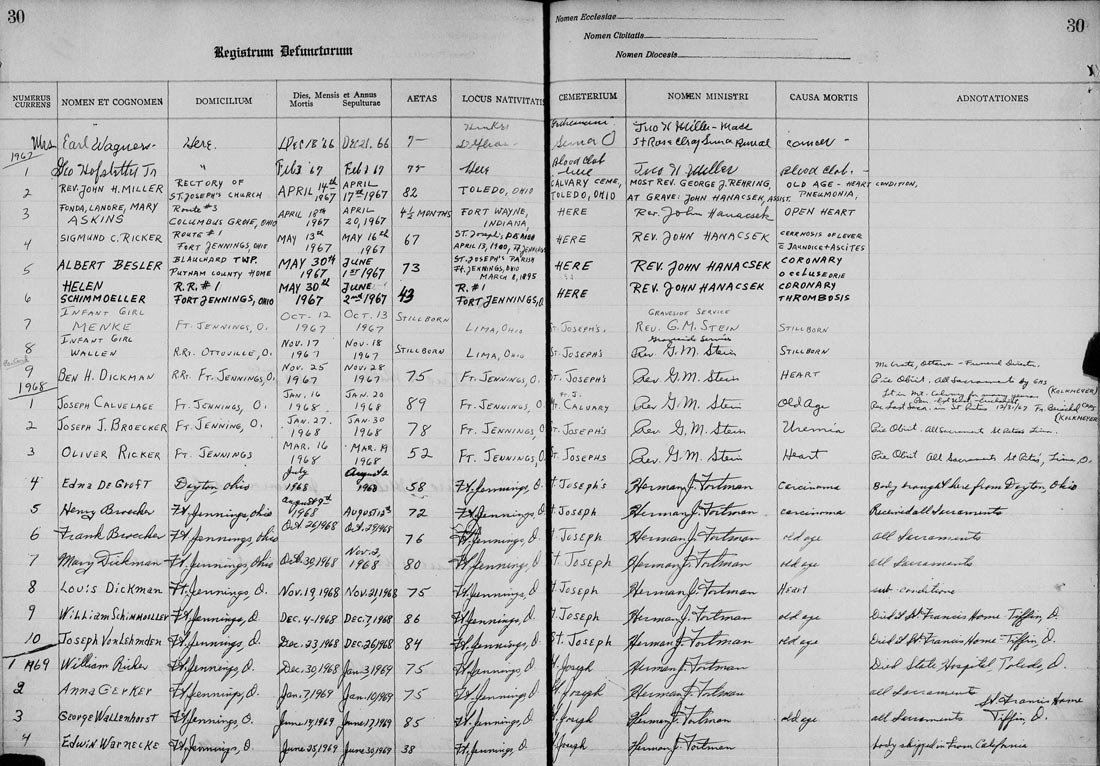 30
Registrum Defunctorum
Nomen Ecclesiae
Nomen Civitatis
Nomen Diocesis
30
NUMERUS CURRENS NOMEN ET COGNOMEN DOMICILIUM Dies, Mensis et Annus Mortis Sepulturae AETAS LOCUS NATIVITATIS CEMETERIUM NOMEN MINISTRI CAUSA MORTIS ADNOTATIONES
Mrs Earl Wagners Here Dec 18 '66 Dec 21. 66 7- Miller - Mass
1967
1 Geo Hofstetter Jr " Feb 3 '67 Feb 7 '67 75 Here Miller Blood Clot
2 REV. JOHN H. MILLER RECTORY OF ST. JOSEPH'S CHURCH APRIL 14th 1967 APRIL 17th 1967 82 TOLEDO, OHIO CALVARY CEME, TOLEDO, OHIO MOST REV. GEORGE J. REHRING, AT GRAVE: JOHN HANACSEK, ASSIST. OLD AGE - HEART CONDITION, PNEUMONIA,
3 FONDA, LANORE, MARY ASKINS Route #3 COLUMBUS GROVE, OHIO APRIL 18th 1967 APRIL 20, 1967 4½ MONTHS FORT WAYNE, INDIANA, HERE Rev. John Hanacsek OPEN HEART
4 SIGMUND C. RICKER ROUTE #1 FORT JENNINGS, OHIO MAY 13th 1967 MAY 16th 1967 67 APRIL 13, 1900, FT. JENNINGS HERE REV. JOHN HANACSEK CERRNOSIS OF LEVER C JAUNDICE + ASCITES
5 ALBERT BESLER BLAUCHARD TWP. PUTNAM COUNTY HOME MAY 30th 1967 JUNE 1st 1967 73 ST. JOSEPH'S PARISH FT. JENNINGS, OHIO MARCH 8, 1895 HERE REV. JOHN HANACSEK CORONARY OCCLUSEORIE
6 HELEN SCHIMMOELLER R.R. #1 FORT JENNINGS, OHIO MAY 30th 1967 JUNE 2nd 1967 43 R. #1 FORT JENNINGS, O. HERE REV. JOHN HANACSEK CORONARY THROMBOSIS
7 INFANT GIRL MENKE FT. JENNINGS, O. OCT. 12 1967 OCT. 13 1967 STILLBORN LIMA, OHIO ST. JOSEPH'S. GRAVESIDE SERVICE REV. G.M. STEIN STILLBORN
8 INFANT GIRL WALLEN R.R. OTTOVILLE, O. NOV. 17 1967 NOV. 18 1967 STILLBORN LIMA, OHIO ST. JOSEPH'S Graveside Service Rev G.M. Stein STILLBORN
9 BEN H. DICKMAN RR. FT. JENNINGS, O. NOV. 25 1967 NOV. 28 1967 75 FT. JENNINGS, O. ST. JOSEPH'S Rev. G.M. Stein HEART Pie Obiit. All Sacraments by
1968
1 JOSEPH CALVELAGE FT. JENNINGS, O. JAN. 16 1968 JAN. 20 1968 89 FT. JENNINGS, O. FT. J. MT. CALVARY Rev G.M. Stein Old Age (KOLKMEYER)
2 JOSEPH J. BROECKER FT. JENNING, O. JAN. 27, 1968 JAN. 30 1968 78 FT. JENNINGS, O ST. JOSEPH'S Rev G.M. Stein Uremia Pie Obiit. All Sacraments St Ritas Lima. (KOLKMEYER)
3 OLIVER RICKER FT. JENNINGS MAR. 16 1968 MAR. 19 1968 52 FT. JENNINGS, O. ST. JOSEPHS Rev. G.M. Stein Heart Pie Obiit All Sacraments St Ritas', Lima, O.
4 Edna De Groft Dayton, Ohio July 1968 August 2 1968 58 Ft. Jennings, O. St. Joseph's Herman J. Fortman carcinoma Body brought here from Dayton, Ohio
5 Henry Broecker Ft. Jennings, Ohio August 9th 1968 August 12th 72 Ft. Jennings, O. St. Joseph Herman J. Fortman carcinoma Received all Sacraments
6 Frank Broecker Ft. Jennings, Ohio Oct. 26, 1968 Oct. 29, 1968 76 Ft. Jennings, O. St. Joseph Herman J. Fortman old age all Sacraments
7 Mary Dickman Ft. Jennings, Ohio Oct. 30, 1968 Nov. 2, 1968 80 Ft. Jennings, O. St. Joseph Herman J. Fortman old age all Sacraments
8 Louis Dickman Ft. Jennings, O. Nov. 19, 1968 Nov. 21, 1968 75 Ft. Jennings, O. St. Joseph Herman J. Fortman Heart sub conditione
9 William Schimmoiller Ft. Jennings, O. Dec. 4-1968 Dec. 7, 1968 86 Ft. Jennings, O. St. Joseph Herman J. Fortman old age Died at St. Francis Home Tiffin, O.
10 Joseph Von Lehmden Ft. Jennings, O. Dec. 23, 1968 Dec. 26, 1968 84 Ft. Jennings, O. St. Joseph Herman J. Fortman old age Died at St. Francis Home - Tiffin, O.
1 1969 William Ricker Ft. Jennings, O. Dec. 30, 1968 Jan. 3, 1969 75 Ft. Jennings, O. St. Joseph Herman J. Fortman Died State Hospital Toledo, O.
2 Anna Gerker Ft. Jennings, O. Jan. 7, 1969 Jan. 10, 1969 75 Ft. Jennings, O. St. Joseph Herman J. Fortman all Sacraments
3 George Wallenhorst Ft. Jennings, O. June 14, 1969 June 17, 1969 85 Ft. Jennings, O. St. Joseph Herman J. Fortman old age all Sacraments St. Francis Home Tiffin, O.
4 Edwin Warnecke Ft. Jennings, O. June 25, 1969 June 30, 1969 38 Ft. Jennings, O. St. Joseph Herman J. Fortman body shipped in from California